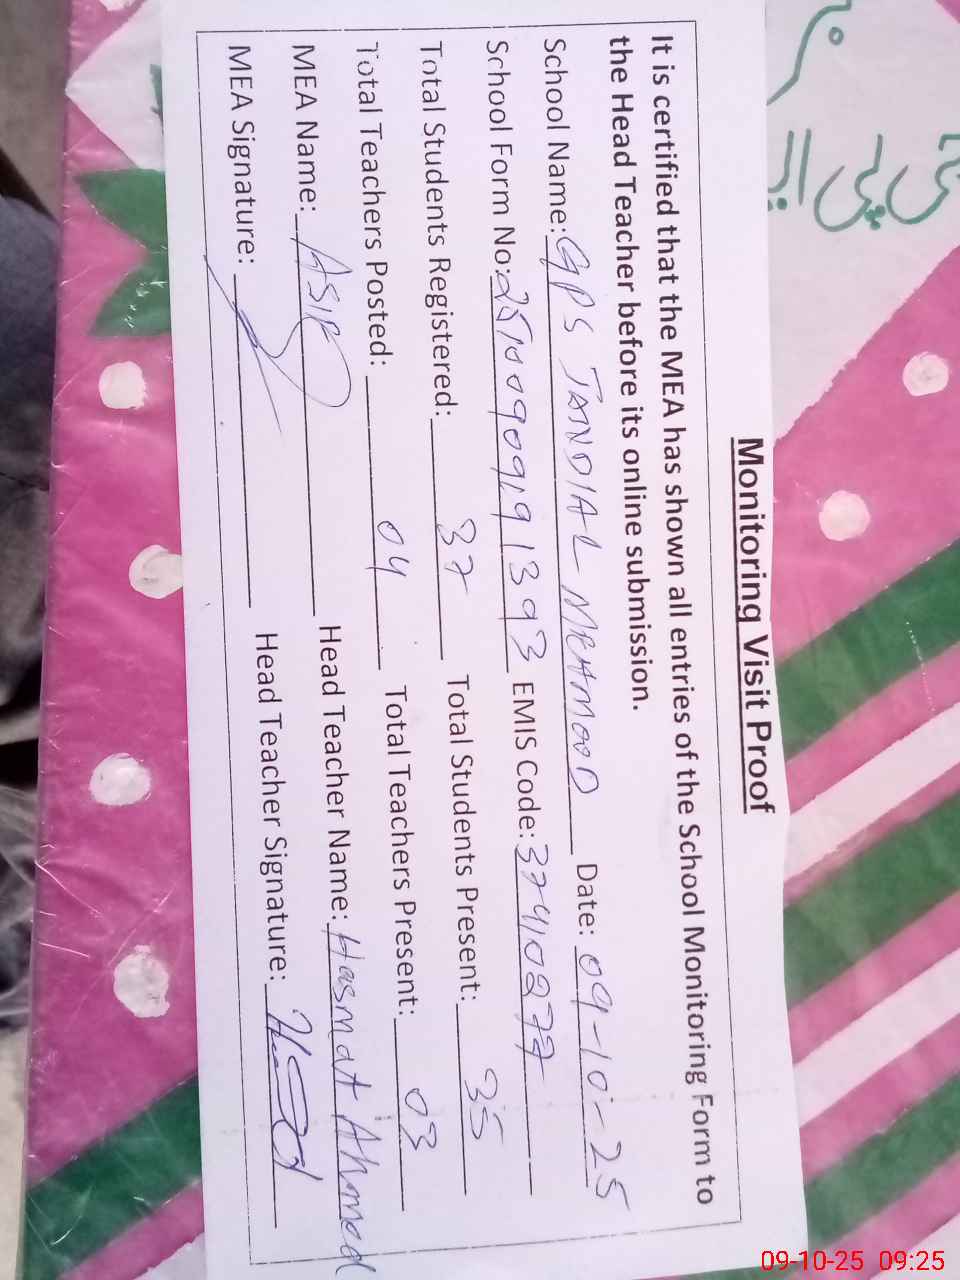 Monitoring Visit Proof
It is certified that the MEA has shown all entries of the School Monitoring Form to
the Head Teacher before its online submission.
School Name: GPS TANDIAL MEHMOOD Date: 09-10-25
School Form No: EMIS Code: 37410277
Total Students Registered: 37 Total Students Present: 35
Total Teachers Posted: 04 Total Teachers Present: 03
MEA Name: ASIF Head Teacher Name: Hasmat Ahmed
MEA Signature: Head Teacher Signature:
09-10-25 09:25